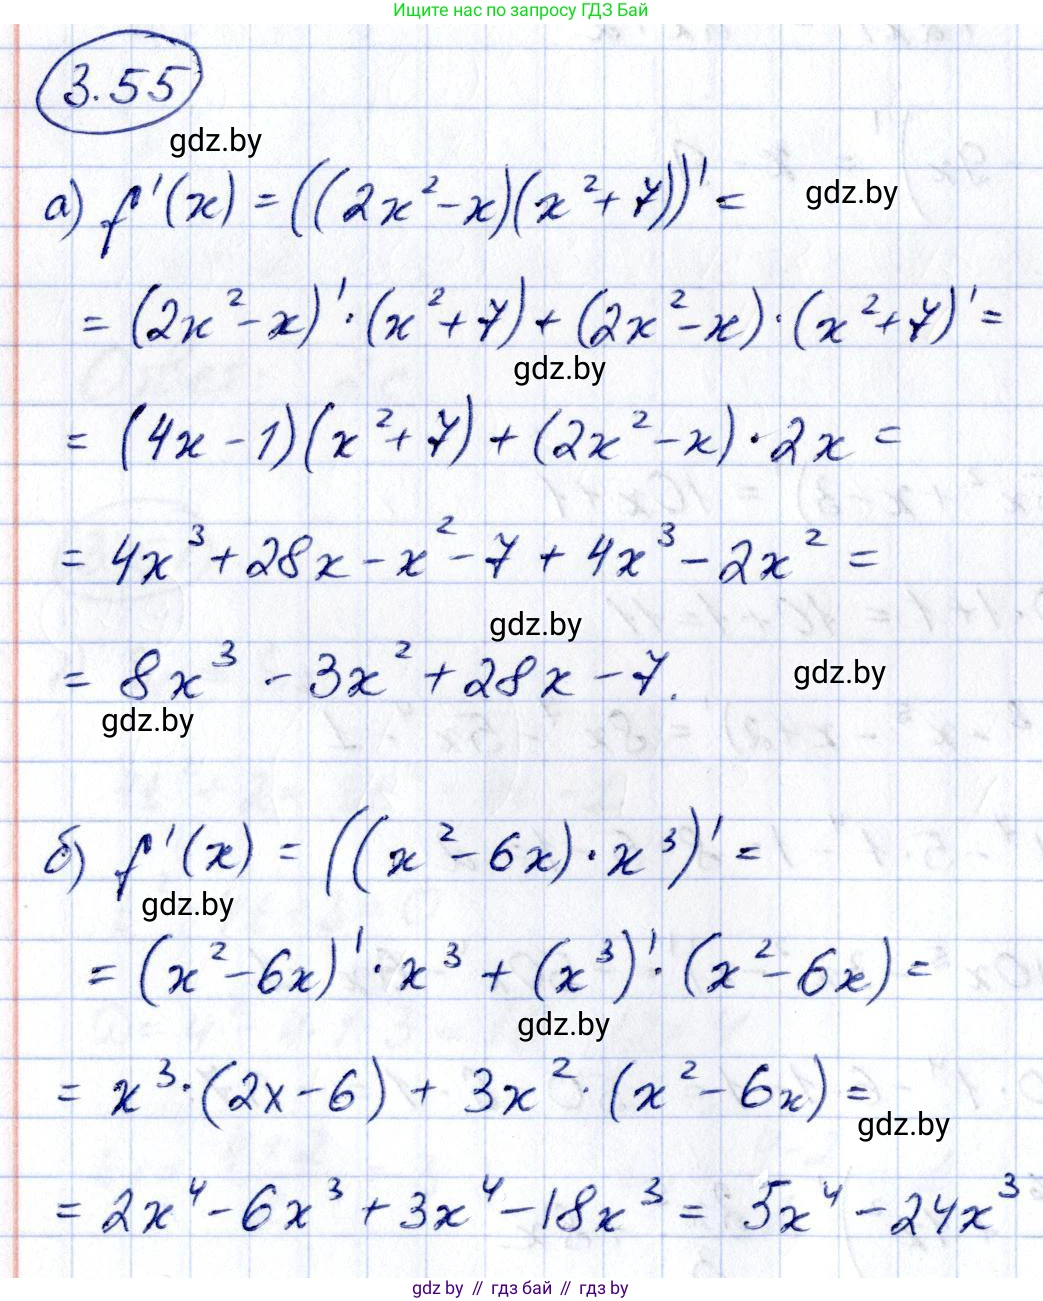 Ищите нас по запросу ГДЗ Бай
3.55
gdz.by
а) f'(x) = ((2x²-x)(x²+7))' =
gdz.by
= (2x²-x)'·(x²+7)+(2x²-x)·(x²+7)' =
gdz.by
= (4x-1)(x²+7)+(2x²-x)·2x =
= 4x³+28x-x²-7+4x³-2x² =
gdz.by
= 8x³-3x²+28x-7.
gdz.by
gdz.by
б) f'(x) = ((x²-6x)·x³)' =
gdz.by
= (x²-6x)'·x³+(x³)'·(x²-6x) =
gdz.by
= x³·(2x-6)+3x²·(x²-6x) =
gdz.by
= 2x⁴-6x³+3x⁴-18x³ = 5x⁴-24x³
gdz.by // гдз бай // гдз by